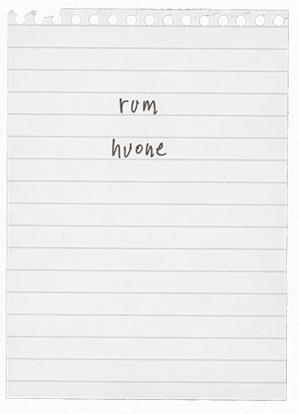 rum
huone